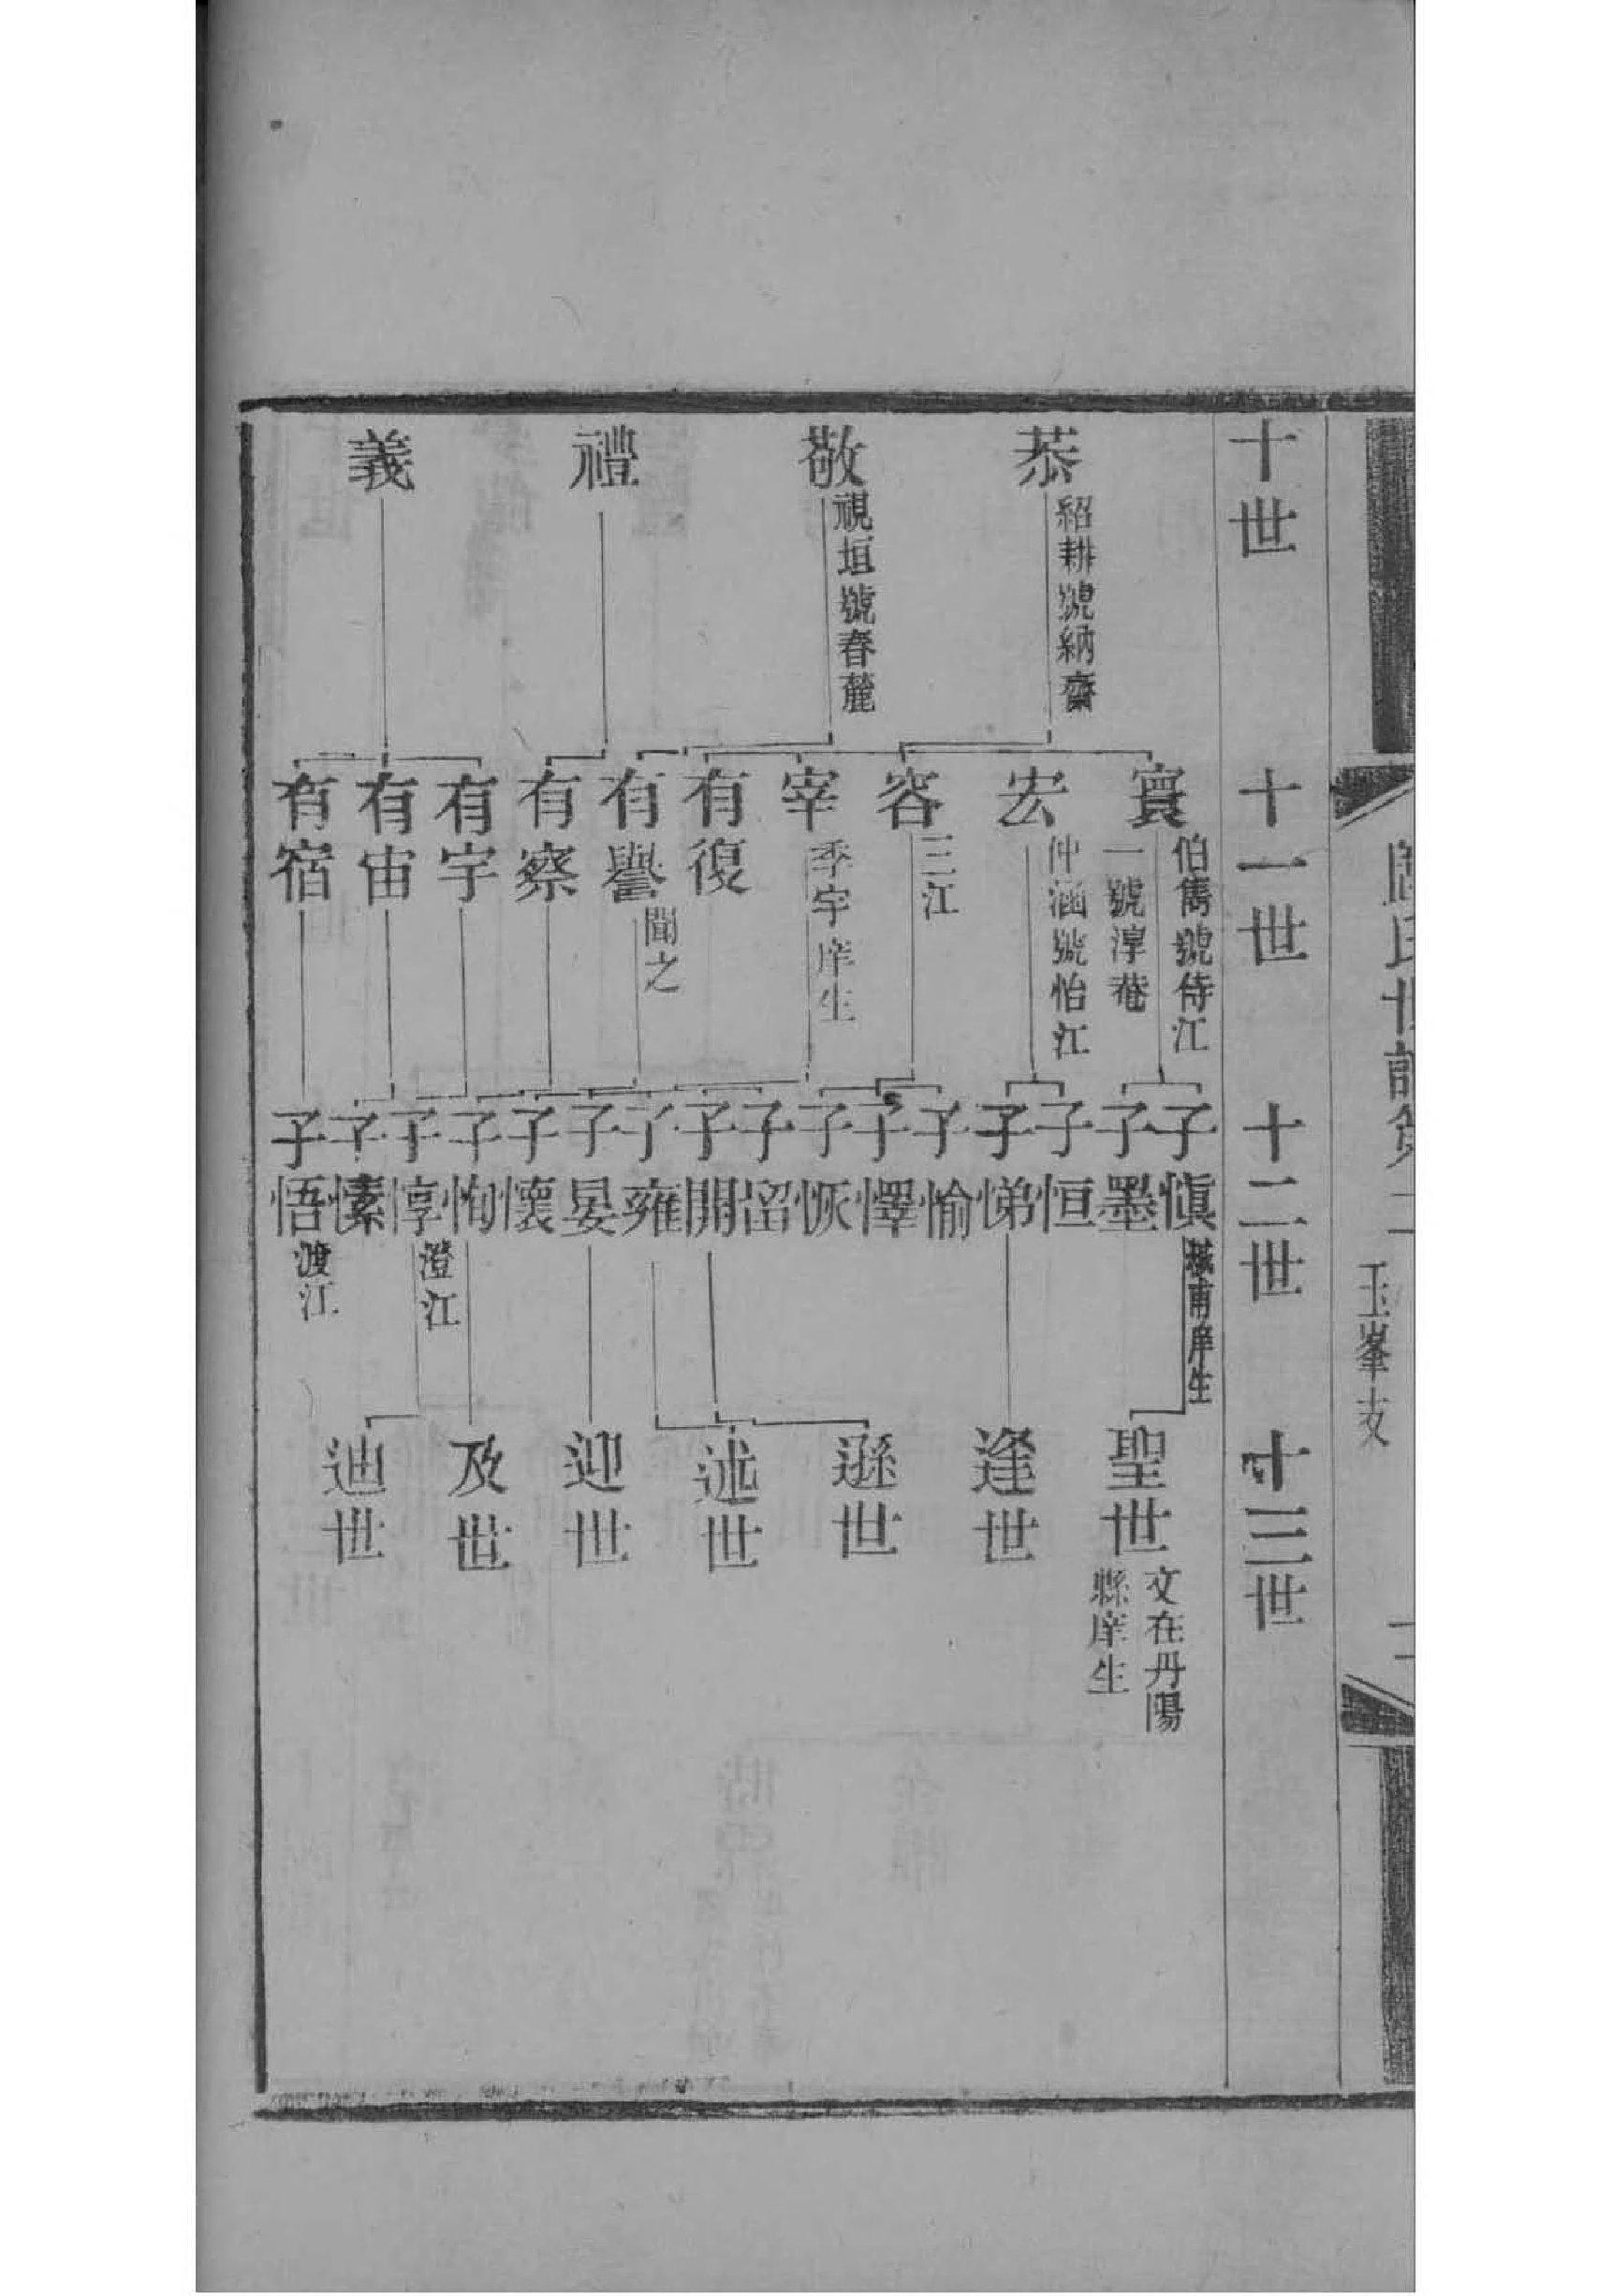 玉峯支
十世
十一世
十二世
十三世
恭
紹耕號納齋
敬
視垣號春麓
禮
義
寰
伯雋號侍江
一號淳菴
宏
仲涵號怡江
容
三江
宰
季宇庠生
有復
有譽
聞之
有察
有宇
有宙
有宿
子愼
堿甫庠生
子墨
子恒
子悌
子愉
子懌
子恢
子
子開
子雍
子晏
子懷
子恂
子惇
澄江
子愫
子悟
渡江
聖世
文在丹陽
縣庠生
逢世
遜世
述世
迎世
及世
迪世